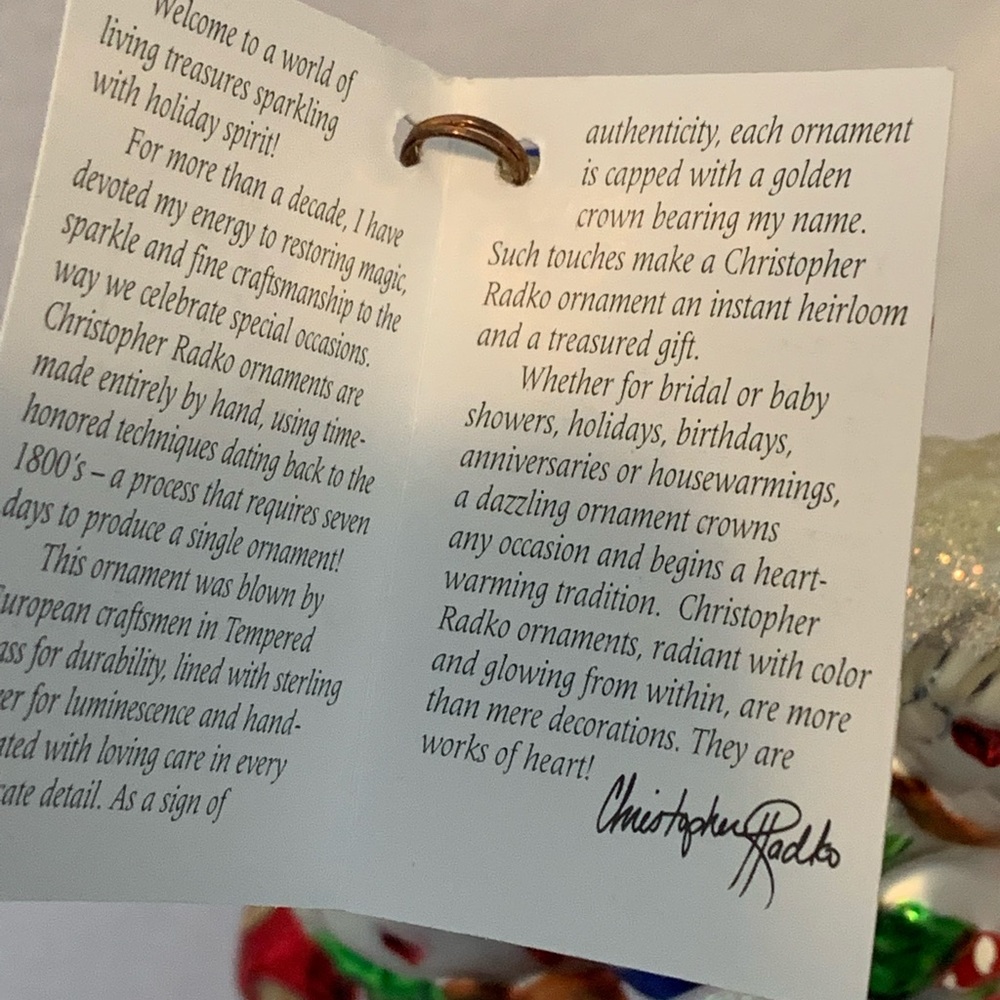 Welcome to a world of
living treasures sparkling
with holiday spirit!
For more than a decade, I have
devoted my energy to restoring magic,
sparkle and fine craftsmanship to the
way we celebrate special occasions.
Christopher Radko ornaments are
made entirely by hand, using time-
honored techniques dating back to the
1800's – a process that requires seven
days to produce a single ornament!
This ornament was blown by
European craftsmen in Tempered
for durability, lined with sterling
for luminescence and hand-
with loving care in every
detail. As a sign of
authenticity, each ornament
is capped with a golden
crown bearing my name.
Such touches make a Christopher
Radko ornament an instant heirloom
and a treasured gift.
Whether for bridal or baby
showers, holidays, birthdays,
anniversaries or housewarmings,
a dazzling ornament crowns
any occasion and begins a heart-
warming tradition. Christopher
Radko ornaments, radiant with color
and glowing from within, are more
than mere decorations. They are
works of heart!
Christopher Radko